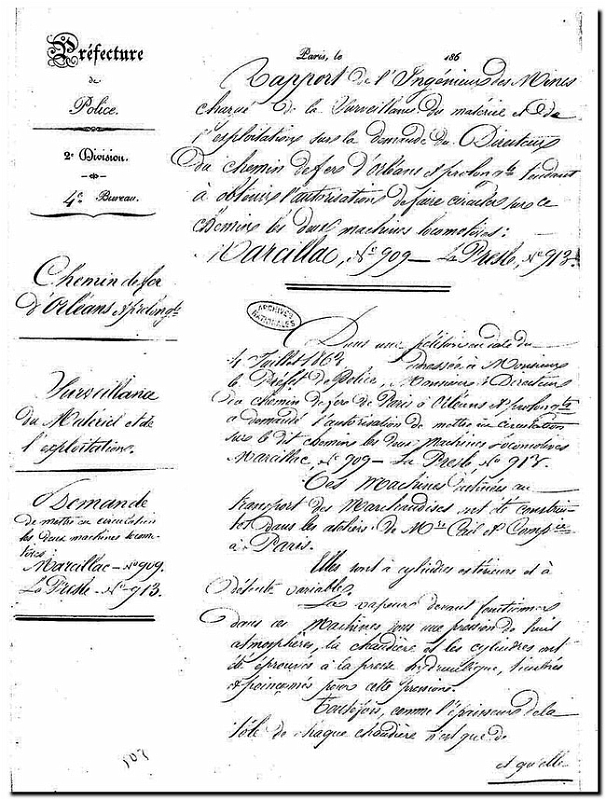 Préfecture
de
Police.
2e Division.
4e Bureau.
Chemin de fer
d'Orléans et prolongts
Surveillance
du Matériel et de
l'exploitation.
Demande
de mettre en circulation
les deux machines locomo-
tives
Marcillac – No 909.
La Presle – No 913.
Paris, le 186
Rapport de l'Ingénieur des Mines
chargé de la Surveillance du matériel et de
l'exploitation sur la demande du Directeur
du chemin de fer d'Orléans et prolongts tendant
à obtenir l'autorisation de faire circuler sur ce
chemin les deux machines locomotives :
Marcillac, No 909 – La Presle, No 913.
ARCHIVES
NATIONALES
Dans une pétition en date du
4 Juillet 1864 adressée à Monsieur
le Préfet de Police, Monsieur le Directeur
du chemin de fer de Paris à Orléans et prolongts
a demandé l'autorisation de mettre en circulation
sur le dit chemin les deux Machines locomotives
Marcillac, No 909 – La Presle No 913.
Ces Machines destinées au
transport des Marchandises ont été construi-
tes dans les ateliers de Mrs Cail et Compie
à Paris.
Elles sont à cylindres extérieurs et à
détente variable.
La vapeur devant fonctionner
dans ces Machines sous une pression de huit
atmosphères, la chaudière et les cylindres ont
été éprouvés à la presse hydraulique, timbrés
et poinçonnés pour cette pression.
Toutefois, comme l'épaisseur de la
tôle de chaque chaudière n'est que de
et qu'elle